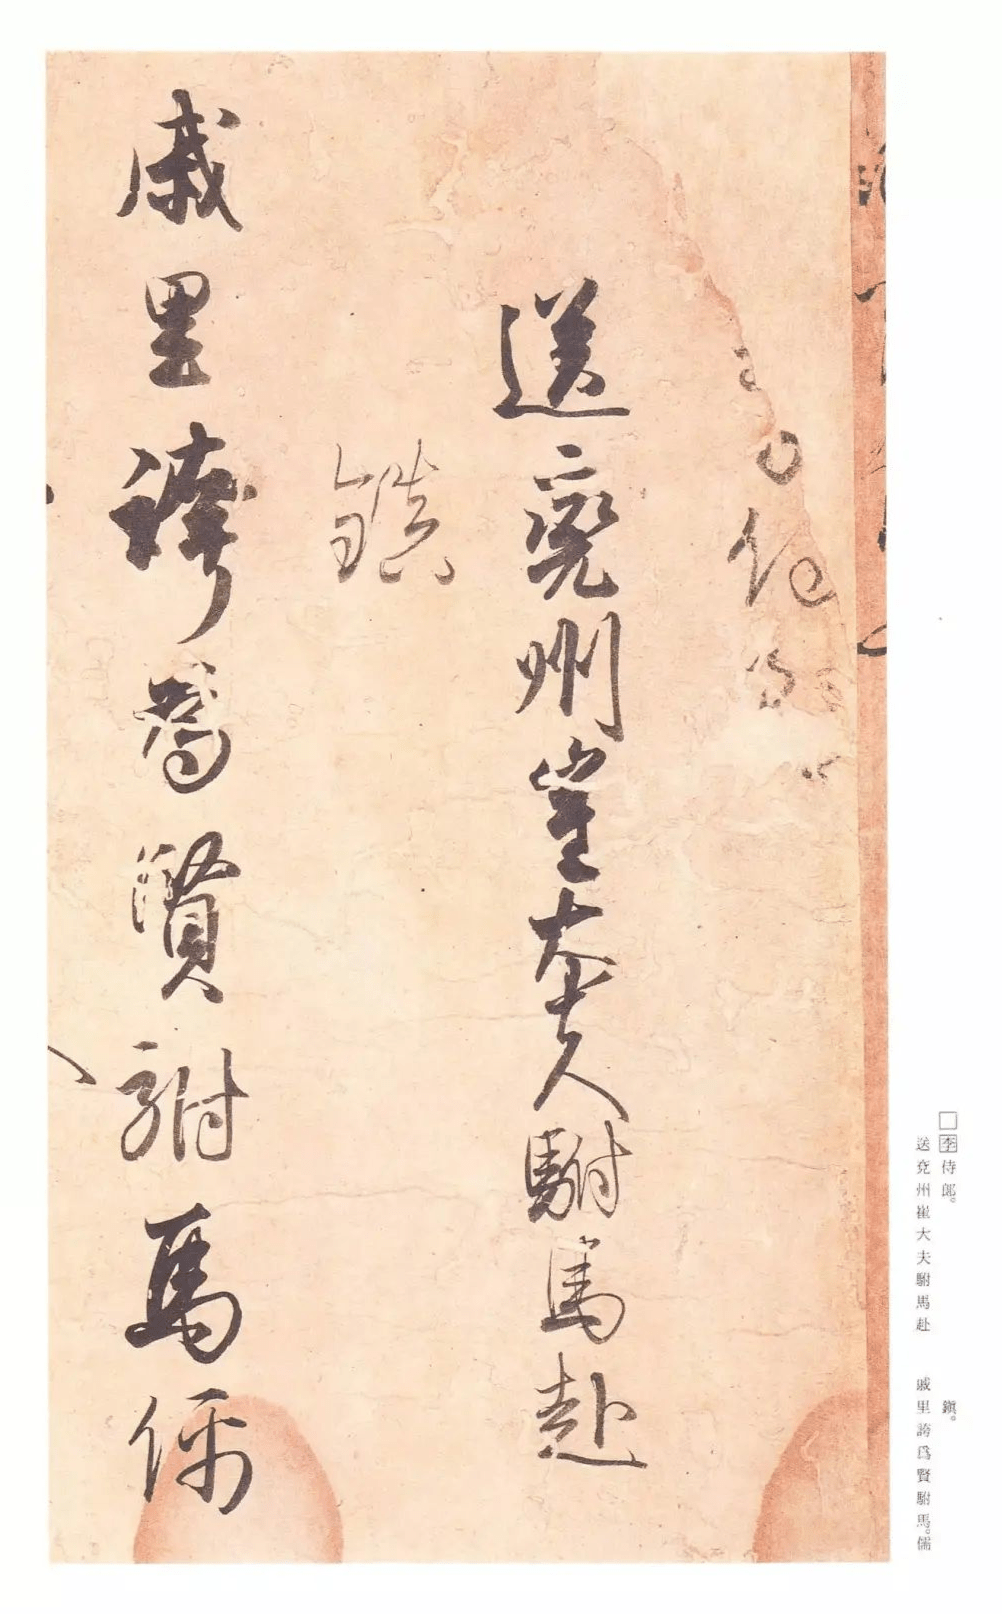 侍郎
送兖州崔大夫駙馬赴
鎮
戚里誇為賢駙馬儒
□李侍郎。
送兖州崔大夫駙馬赴
鎮。
戚里誇為賢駙馬。儒